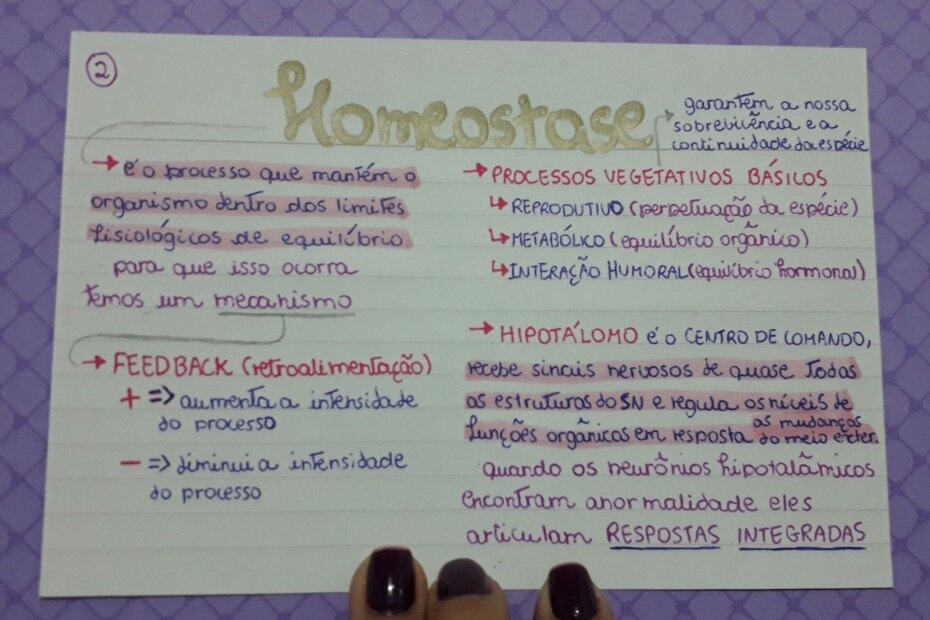 2
Homeostase
→ é o processo que mantém o
organismo dentro dos limites
fisiológicos de equilíbrio
para que isso ocorra
temos um mecanismo
→ FEEDBACK (retroalimentação)
+ => aumenta a intensidade
do processo
− => diminui a intensidade
do processo
garantem a nossa
sobrevivência e a
continuidade da espécie
→ PROCESSOS VEGETATIVOS BÁSICOS
↳ REPRODUTIVO (perpetuação da espécie)
↳ METABÓLICO (equilíbrio orgânico)
↳ INTERAÇÃO HUMORAL (equilíbrio hormonal)
→ HIPOTÁLOMO é o CENTRO DE COMANDO,
recebe sinais nervosos de quase todas
as estruturas do SN e regula os níveis de
funções orgânicas em resposta as mudanças
do meio exter.
quando os neurônios hipotalâmicos
encontram anormalidade eles
articulam RESPOSTAS INTEGRADAS